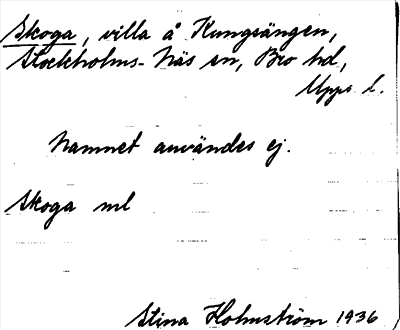 Skoga, villa å Kungsängen,
Stockholms-Näs sn, Bro hd,
Upps. l.
Namnet användes ej.
Skoga ml
Stina Holmström 1936